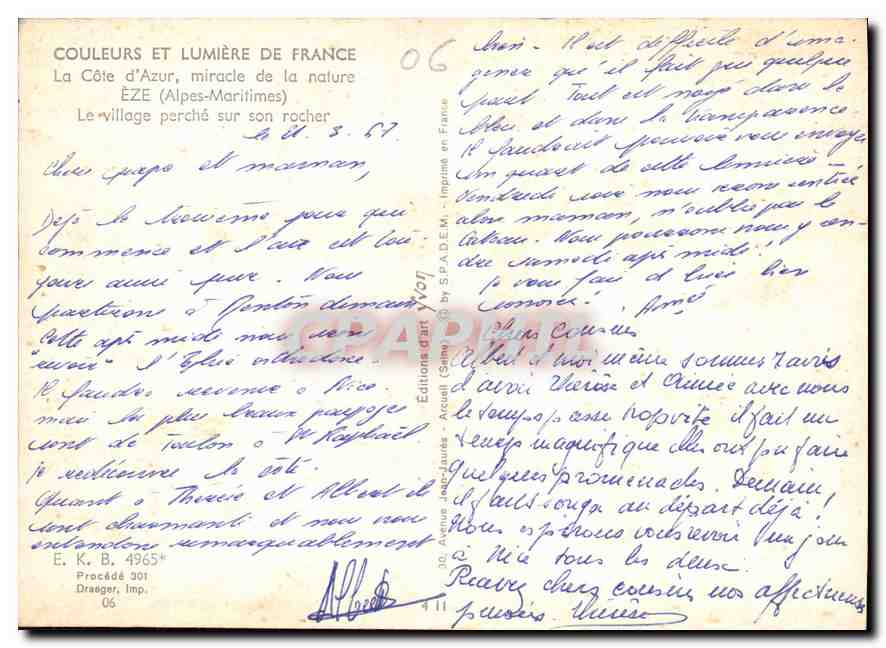 COULEURS ET LUMIÈRE DE FRANCE
La Côte d'Azur, miracle de la nature
ÈZE (Alpes-Maritimes)
Le village perché sur son rocher
le 21-3-67
06
Chers papa et maman,
Déjà le troisième jour qui
commence et l'air est tou-
jours aussi pur. Nous
partirons à Menton demain
Cette après midi nous
"revoir" l'Eglise orthodoxe.
Il faudra revenir à Nice
mais les plus beaux paysages
sont de Toulon à St Raphaël
Je redécouvre la côte.
Quant à Thérèse et Albert ils
sont charmants et nous nous
entendons remarquablement
bien - Il est difficile d'ima-
giner qu'il fait gris quelque
part. Tout est noyé dans le
bleu et dans la transparence
Il faudrait pouvoir vous envoyer
un quart de cette lumière -
Vendredi soir nous serons
alors maman, n'oublie pas le
Nous pourrons nous y en-
dre samedi après midi!
Je vous fais à tous bien
Aimée
Chers cousins
Albert et moi même sommes ravis
d'avoir Thérèse et Aimée avec nous
le temps passe trop vite il fait un
temps magnifique elles ont pu faire
quelques promenades. Demain,
il faut songer au départ déjà!
Nous espérons vous revoir un jour
à Nice tous les deux.
Recevez chers cousins nos affectueuses
pensées. Thérèse
Albert
E. K. B. 4965*
Procédé 301
Draeger, Imp.
06
30, Avenue Jean-Jaurès - Arcueil (Seine) © by S.P.A.D.E.M. - Imprimé en France
Éditions d'art YVON
4 11
CPARAMA